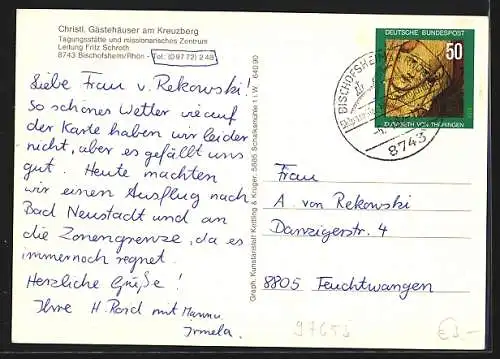 Christl. Gästehäuser am Kreuzberg
Tagungsstätte und missionarisches Zentrum
Leitung Fritz Schroth
8743 Bischofsheim/Rhön - Tel. (0 97 72) 2 48
Liebe Frau v. Rekowski!
So schönes Wetter wie auf
der Karte haben wir leider
nicht, aber es gefällt uns
gut. Heute machten
wir einen Ausflug nach
Bad Neustadt und an
die Zonengrenze, da es
immernoch regnet.
Herzliche Grüße!
Ihre H. mit
Irmela.
Graph. Kunstanstalt Kettling & Krüger, 5885 Schalksmühle 1 i. W. 640 90
DEUTSCHE BUNDESPOST
50
ELISABETH VON THÜRINGEN
BISCHOFSHEIM
8743
Frau
A. von Rekowski
Danzigerstr. 4
8805 Feuchtwangen